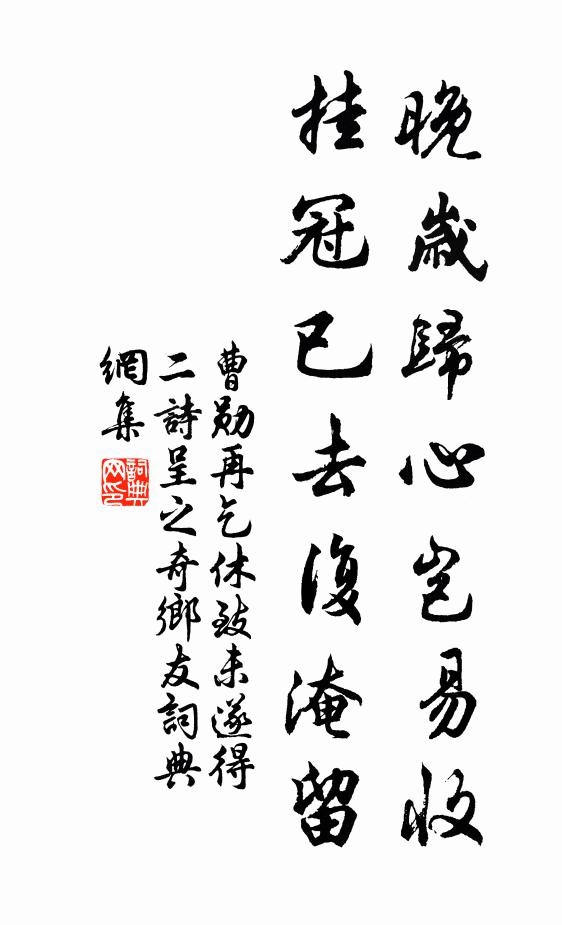 晚歲歸心豈易收
挂冠已去復淹留
曹勛再乞休致未遂得
二詩呈之奇鄉友詞典
網集
詞典
网印